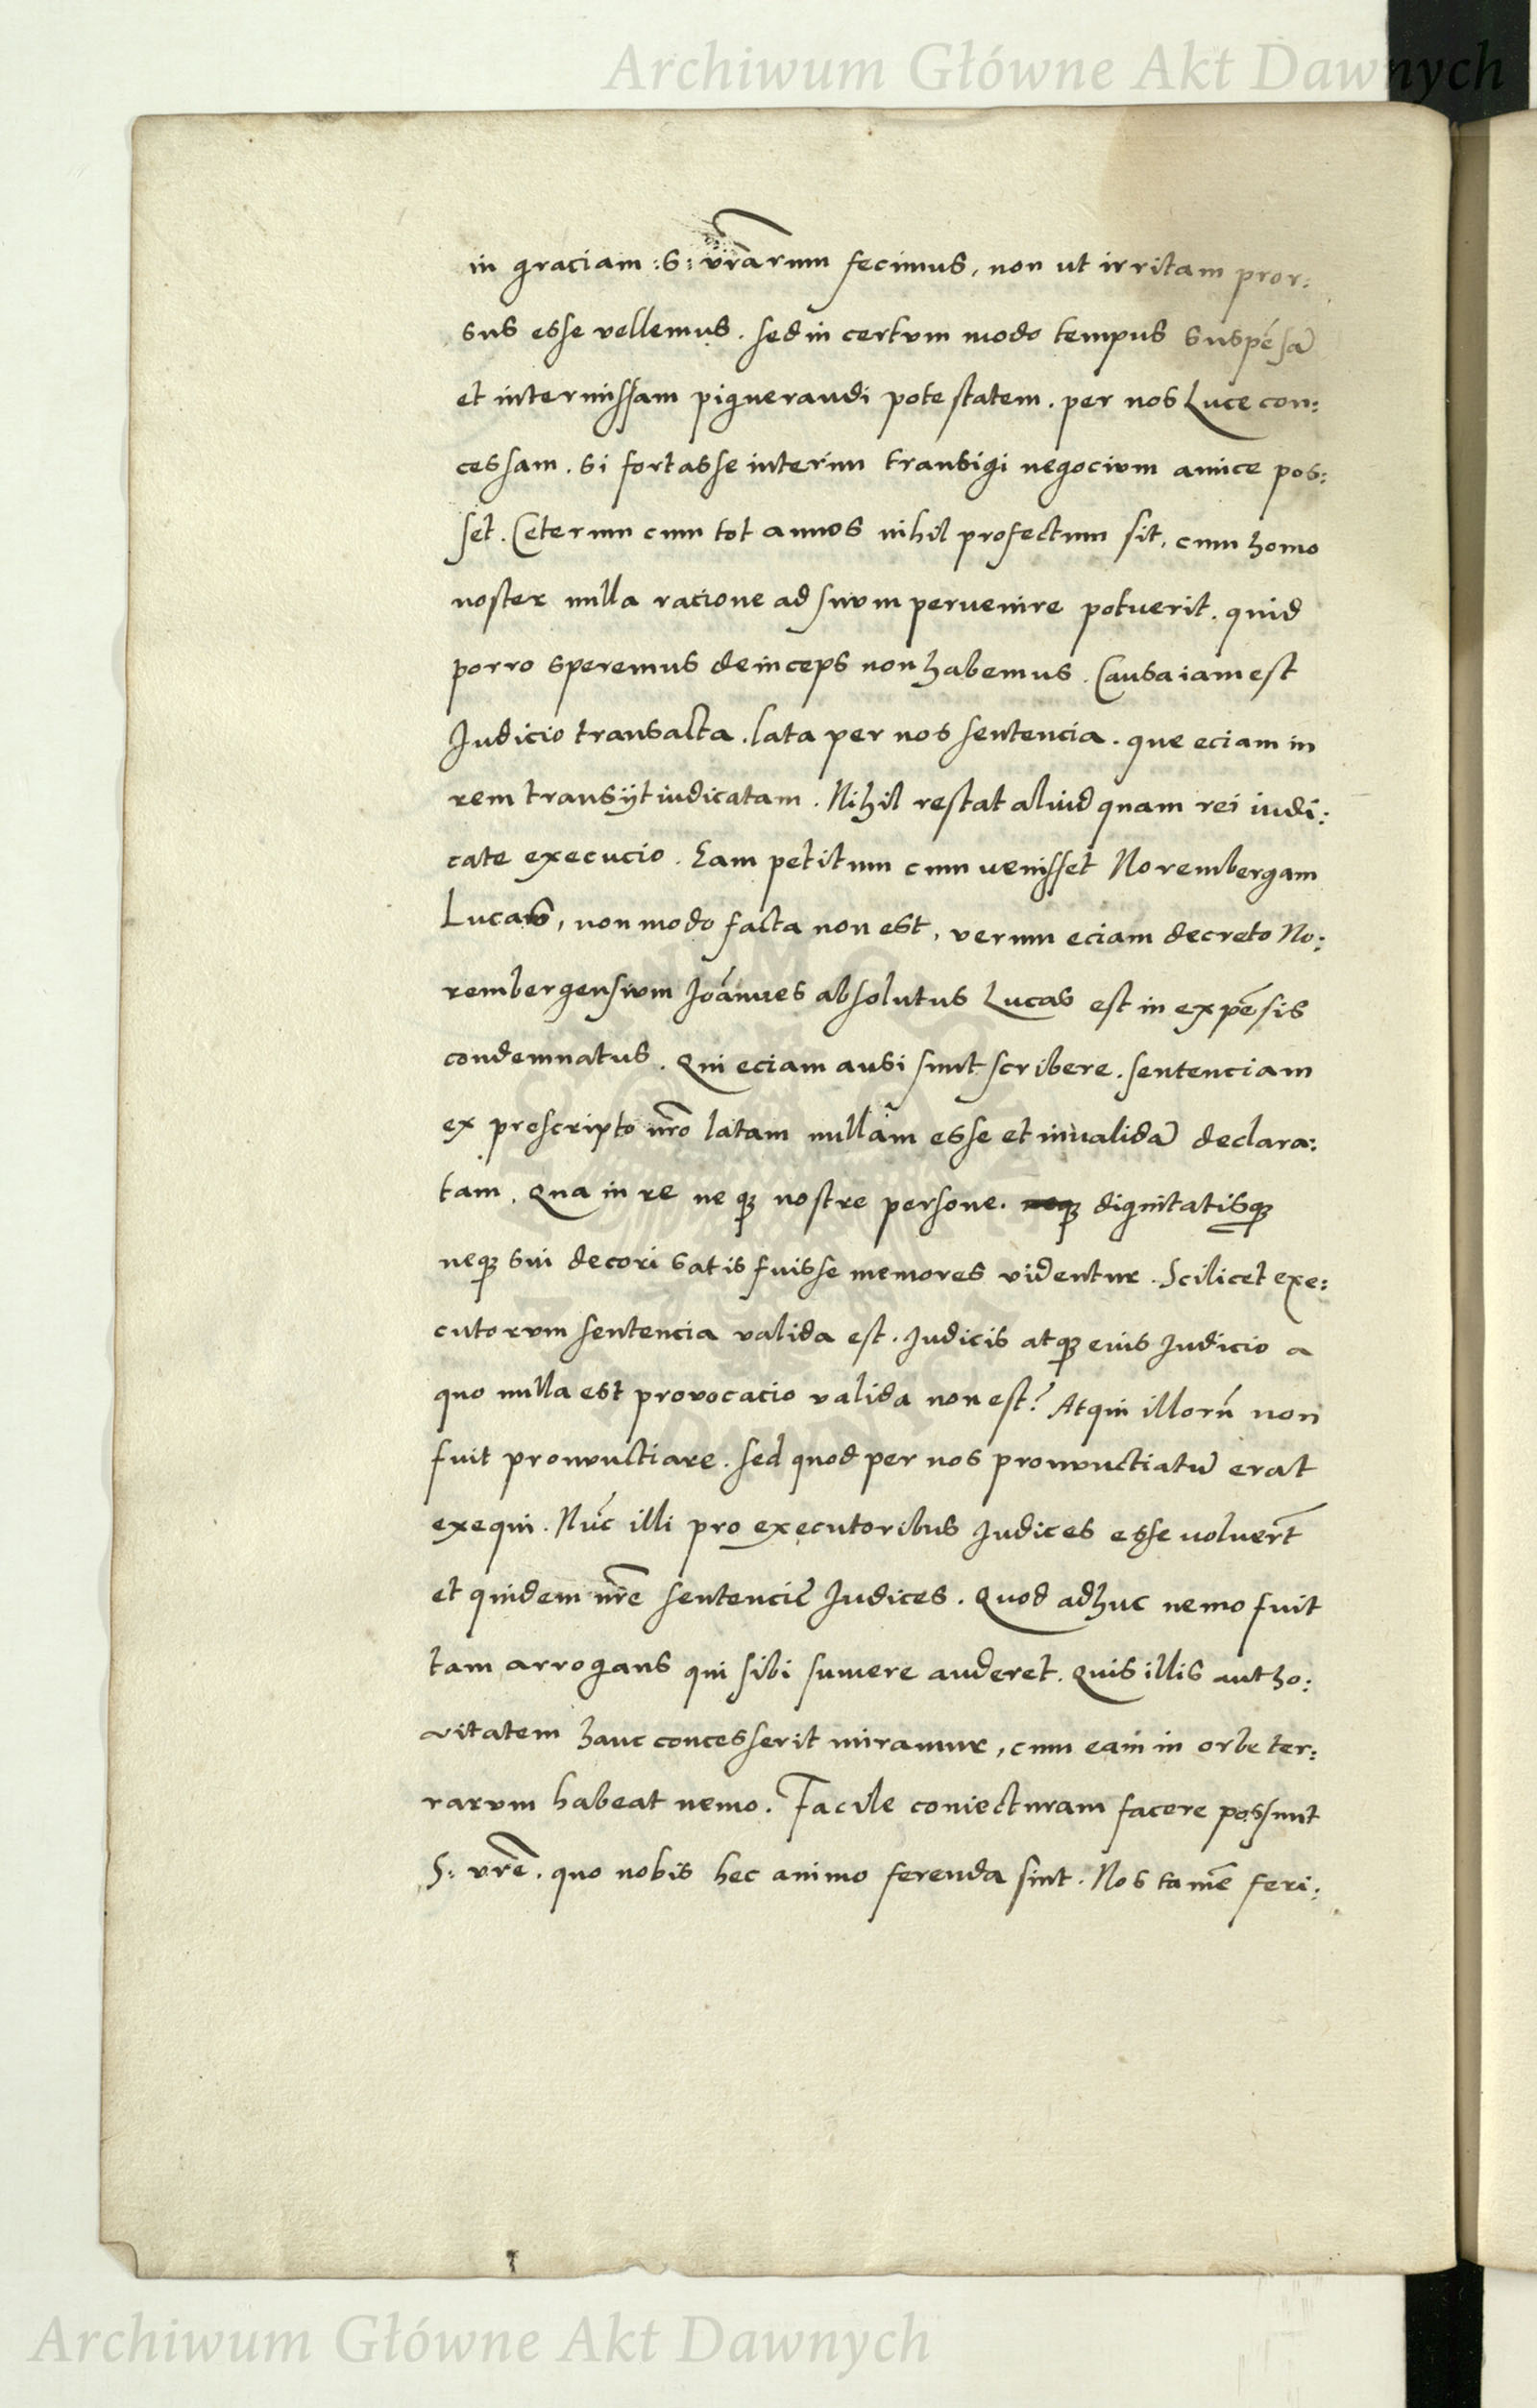 Archiwum Główne Akt Dawnych
in graciam :S: vr̃arum fecimus, non ut irritam pror:
sus esse vellemus . sed in certvm modo tempus suspēsã
et intermissam pignerandi potestatem . per nos Luce con:
cessam . si fortasse interim transigi negocivm amice pos:
set . Ceterum cum tot annos nihil profectum sit, cum homo
noster nulla racione ad suvm pervenire potverit . quid
porro speremus deinceps non habemus . Causa iam est
Judicio transacta . lata per nos sentencia . que eciam in
rem transijt iudicatam . Nihil restat aliud quam rei iudi:
cate execucio . Eam petitum cum venisset Norembergam
Lucas, non modo facta non est, verum eciam decreto No:
rembergensivm Joãnnes absolutus Lucas est in expēsis
condemnatus . Qui eciam ausi sunt scribere . sentenciam
ex prescripto nr̃o latam nullam esse et invalidã declara:
tam . Qua in re neq; nostre persone . neq; dignitatisq;
neq; sui decori satis fuisse memores videntur . Scilicet exe:
cutorvm sentencia valida est . Judicis atq; eius Judicio a
quo nulla est provocacio valida non est? Atqui illorũ non
fuit pronunctiare . sed quod per nos pronunctiatũ erat
exequi . Nũc illi pro executoribus Judices esse voluer̃t
et quidem nr̃e sentencie Judices . Quod adhuc nemo fuit
tam arrogans qui sibi sumere auderet . Quis illis autho:
ritatem hanc concesserit miramur, cum eam in orbe ter:
rarvm habeat nemo . Facile coniecturam facere possunt
S: vr̃e . quo nobis hec animo ferenda sint . Nos tamē feri:
Archiwum Główne Akt Dawnych